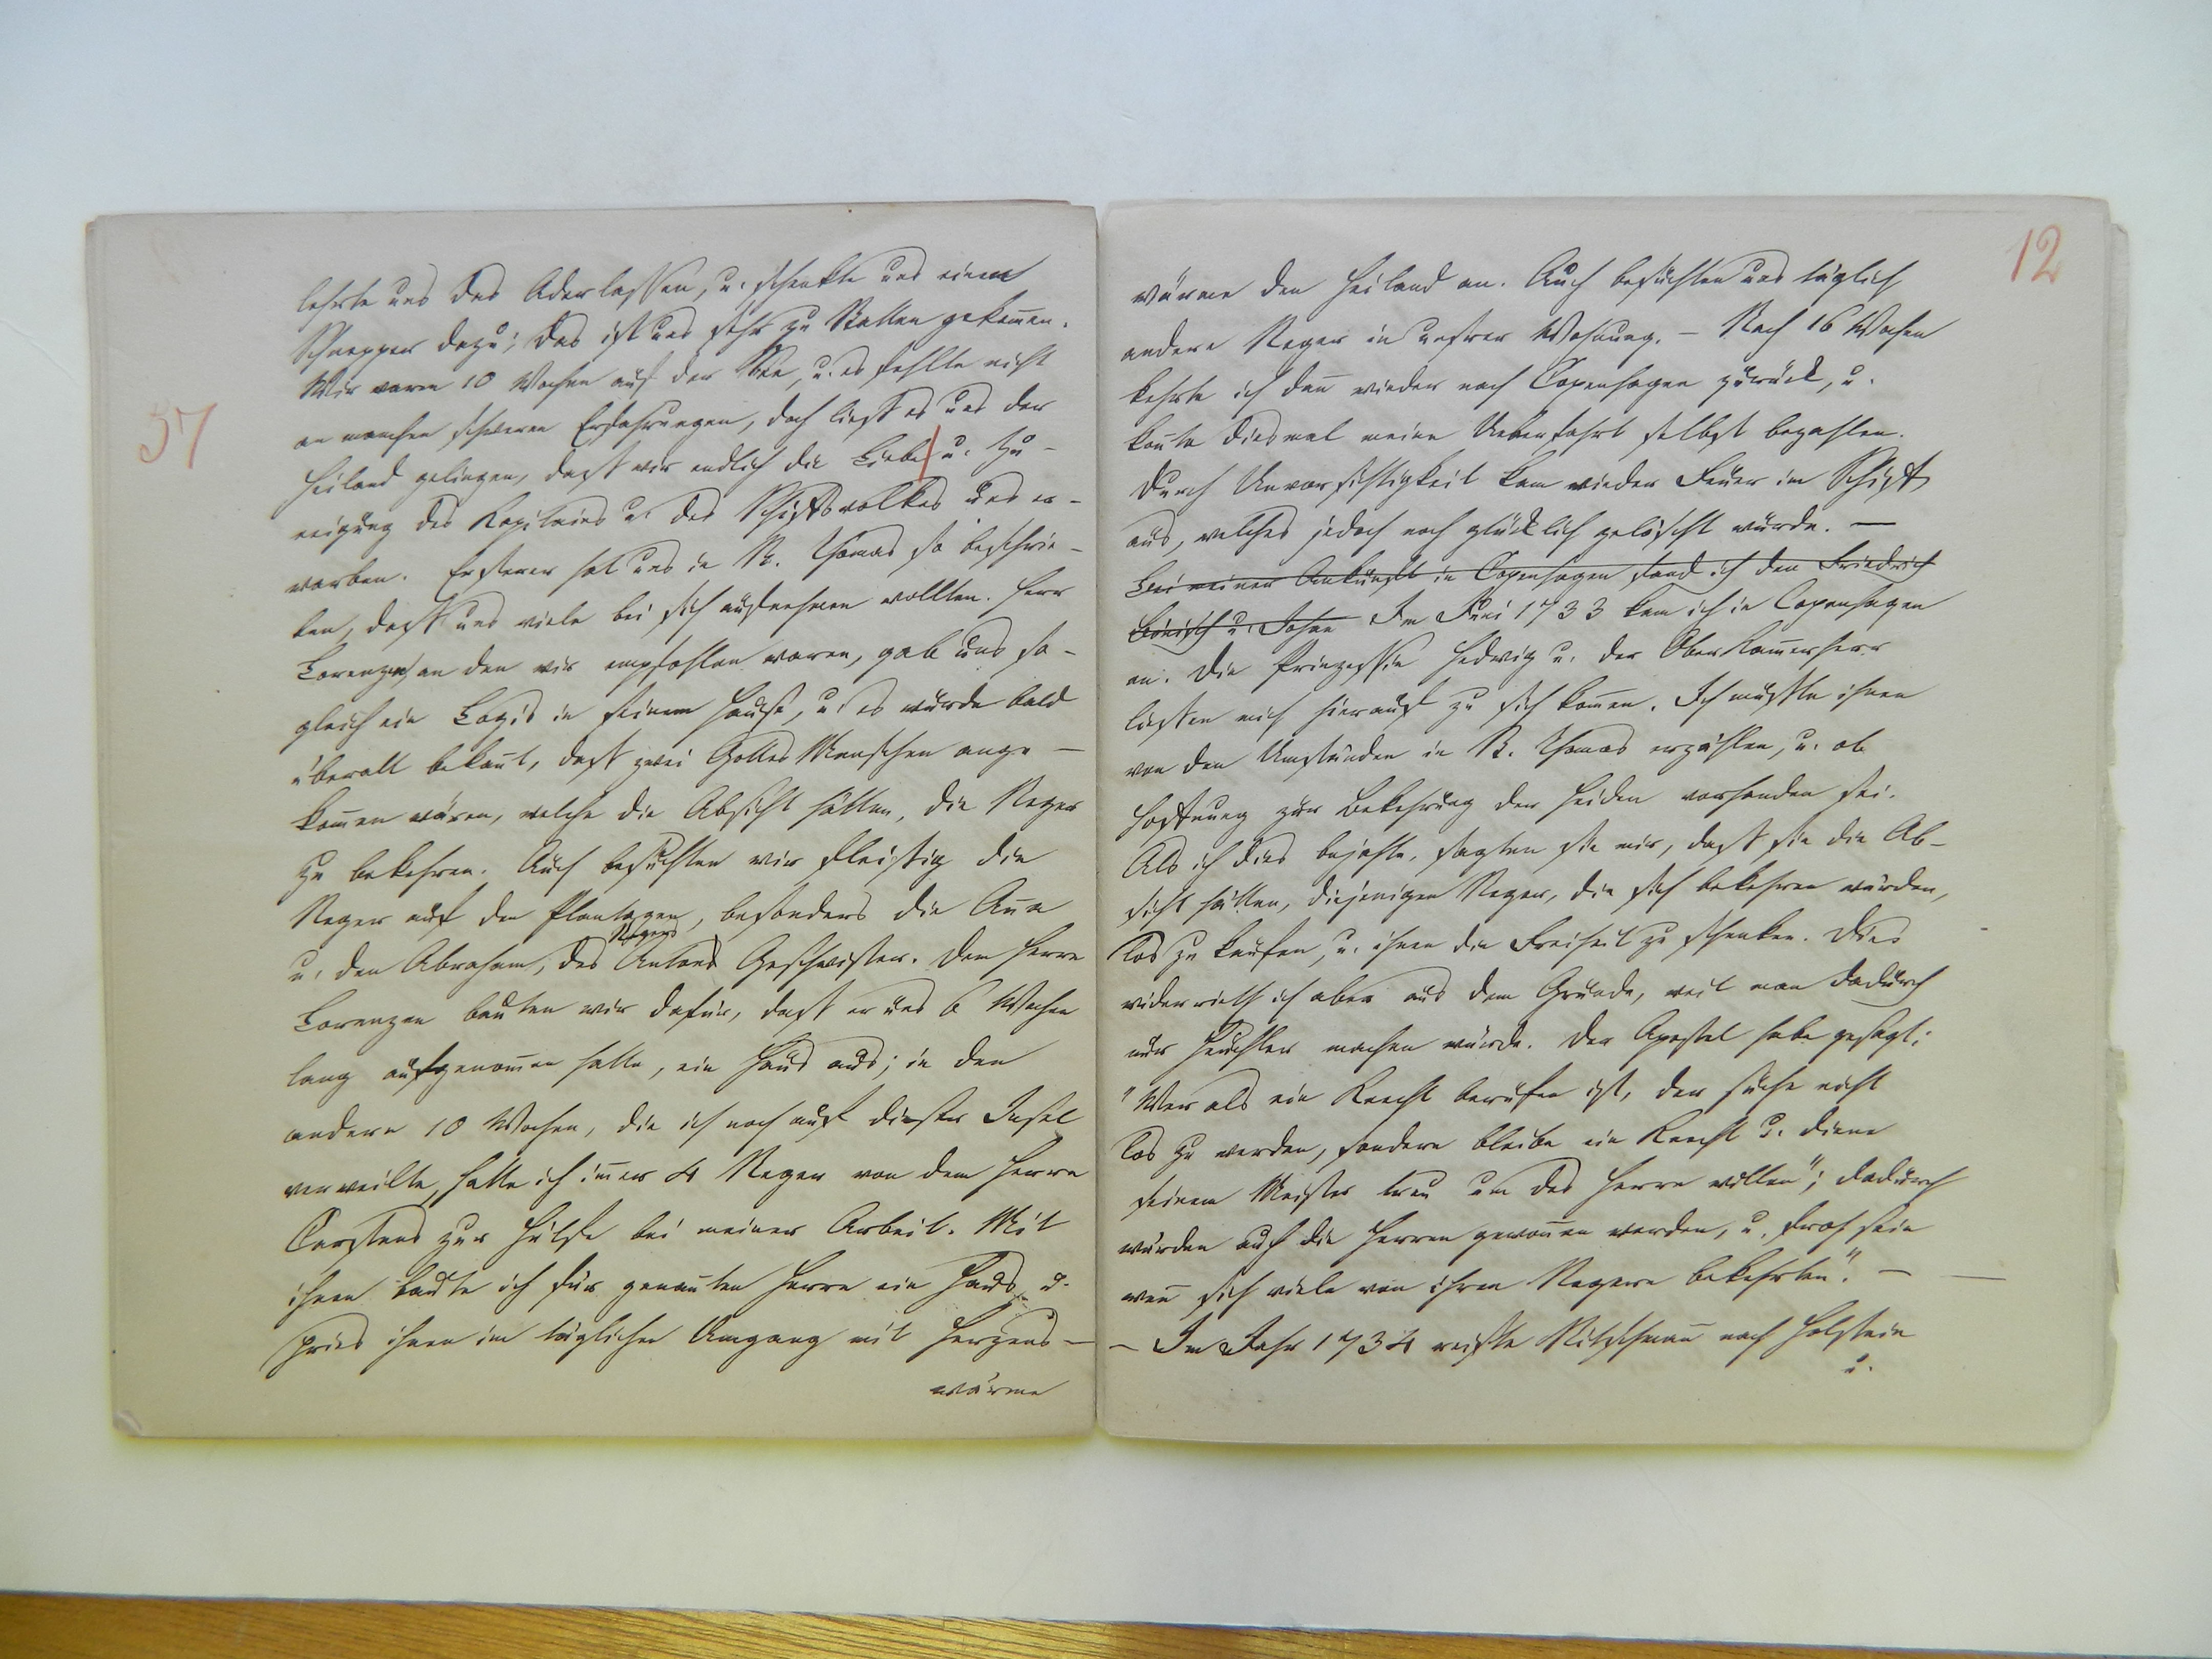 37
lehrte uns das Aderlassen, u. schenkte uns einen
Schnepper dazu; das ist uns sehr zu Statten gekom̄en.
Wir waren 10 Wochen auf der See, u. es fehlte nicht
an manchen schweren Erfahrungen, doch ließ es uns der
Heiland gelingen, daß wir endlich die Liebe u. Zu-
neigung des Kapitains u. des Schiffsvolkes uns er-
warben. Ersterer hat uns in St. Thomas so beschrie-
ben, daß uns viele bei sich aufnehmen wollten. Herr
Lorenzen, an den wir empfohlen waren, gab uns so-
gleich ein Logis in seinem Hause, u. es wurde bald
überall bekan̄t, daß zwei Gottes Menschen ange-
kom̄en wären, welche die Absicht hätten, die Neger
zu bekehren. Auch besuchten wir fleißig die
Neger auf den Plantagen, besonders die An̄a
u. den Abraham, des Negers Antons Geschwister. Dem Herrn
Lorenzen bauten wir dafür, daß er uns 6 Wochen
lang aufgenom̄en hatte, ein Haus aus; in den
andern 10 Wochen, die ich noch auf dieser Insel
verweilte, hatte ich im̄er 4 Neger von dem Herrn
Carstens zur Hülfe bei meiner Arbeit. Mit
ihnen baute ich für genan̄ten Herrn ein Haus, u.
pries ihnen im täglichen Umgang mit Herzens-
wärme
12
wärme den Heiland an. Auch besuchten uns täglich
andere Neger in unsrer Wohnung. – Nach 16 Wochen
kehrte ich dan̄ wieder nach Copenhagen zurück, u.
kon̄te diesmal meine Ueberfahrt selbst bezahlen.
Durch Unvorsichtigkeit kam wieder Feuer im Schiff
aus, welches jedoch noch glücklich gelöscht wurde. —
Bei meiner Ankunft in Copenhagen fand ich den Friedrich
Bönisch u. Johan Im Juni 1733 kam ich in Copenhagen
an. Die Prinzessin Hedwig u. der OberKam̄erherr
ließen mich hierauf zu sich kom̄en. Ich mußte ihnen
von den Umständen in St. Thomas erzählen, u. ob
Hoffnung zur Bekehrung der Heiden vorhanden sei.
Als ich dies bejahte, sagten sie mir, daß sie die Ab-
sicht hätten, diejenigen Neger, die sich bekehren würden,
los zu kaufen, u. ihnen die Freiheit zu schenken. Dies
widerrieth ich aber aus dem Grunde, weil man dadurch
nur Heuchler machen würde. Der Apostel habe gesagt:
"Wer als ein Knecht berufen ist, der suche nicht
los zu werden, sondern bleibe ein Knecht u. diene
seinem Meister treu um des Herrn willen"; dadurch
würden auch die Herren gewon̄en werden, u. froh sein
wen̄ sich viele von ihren Negern bekehrten". —
– Im Jahr 1734 reiste Nitschman̄ nach Holstein
u.